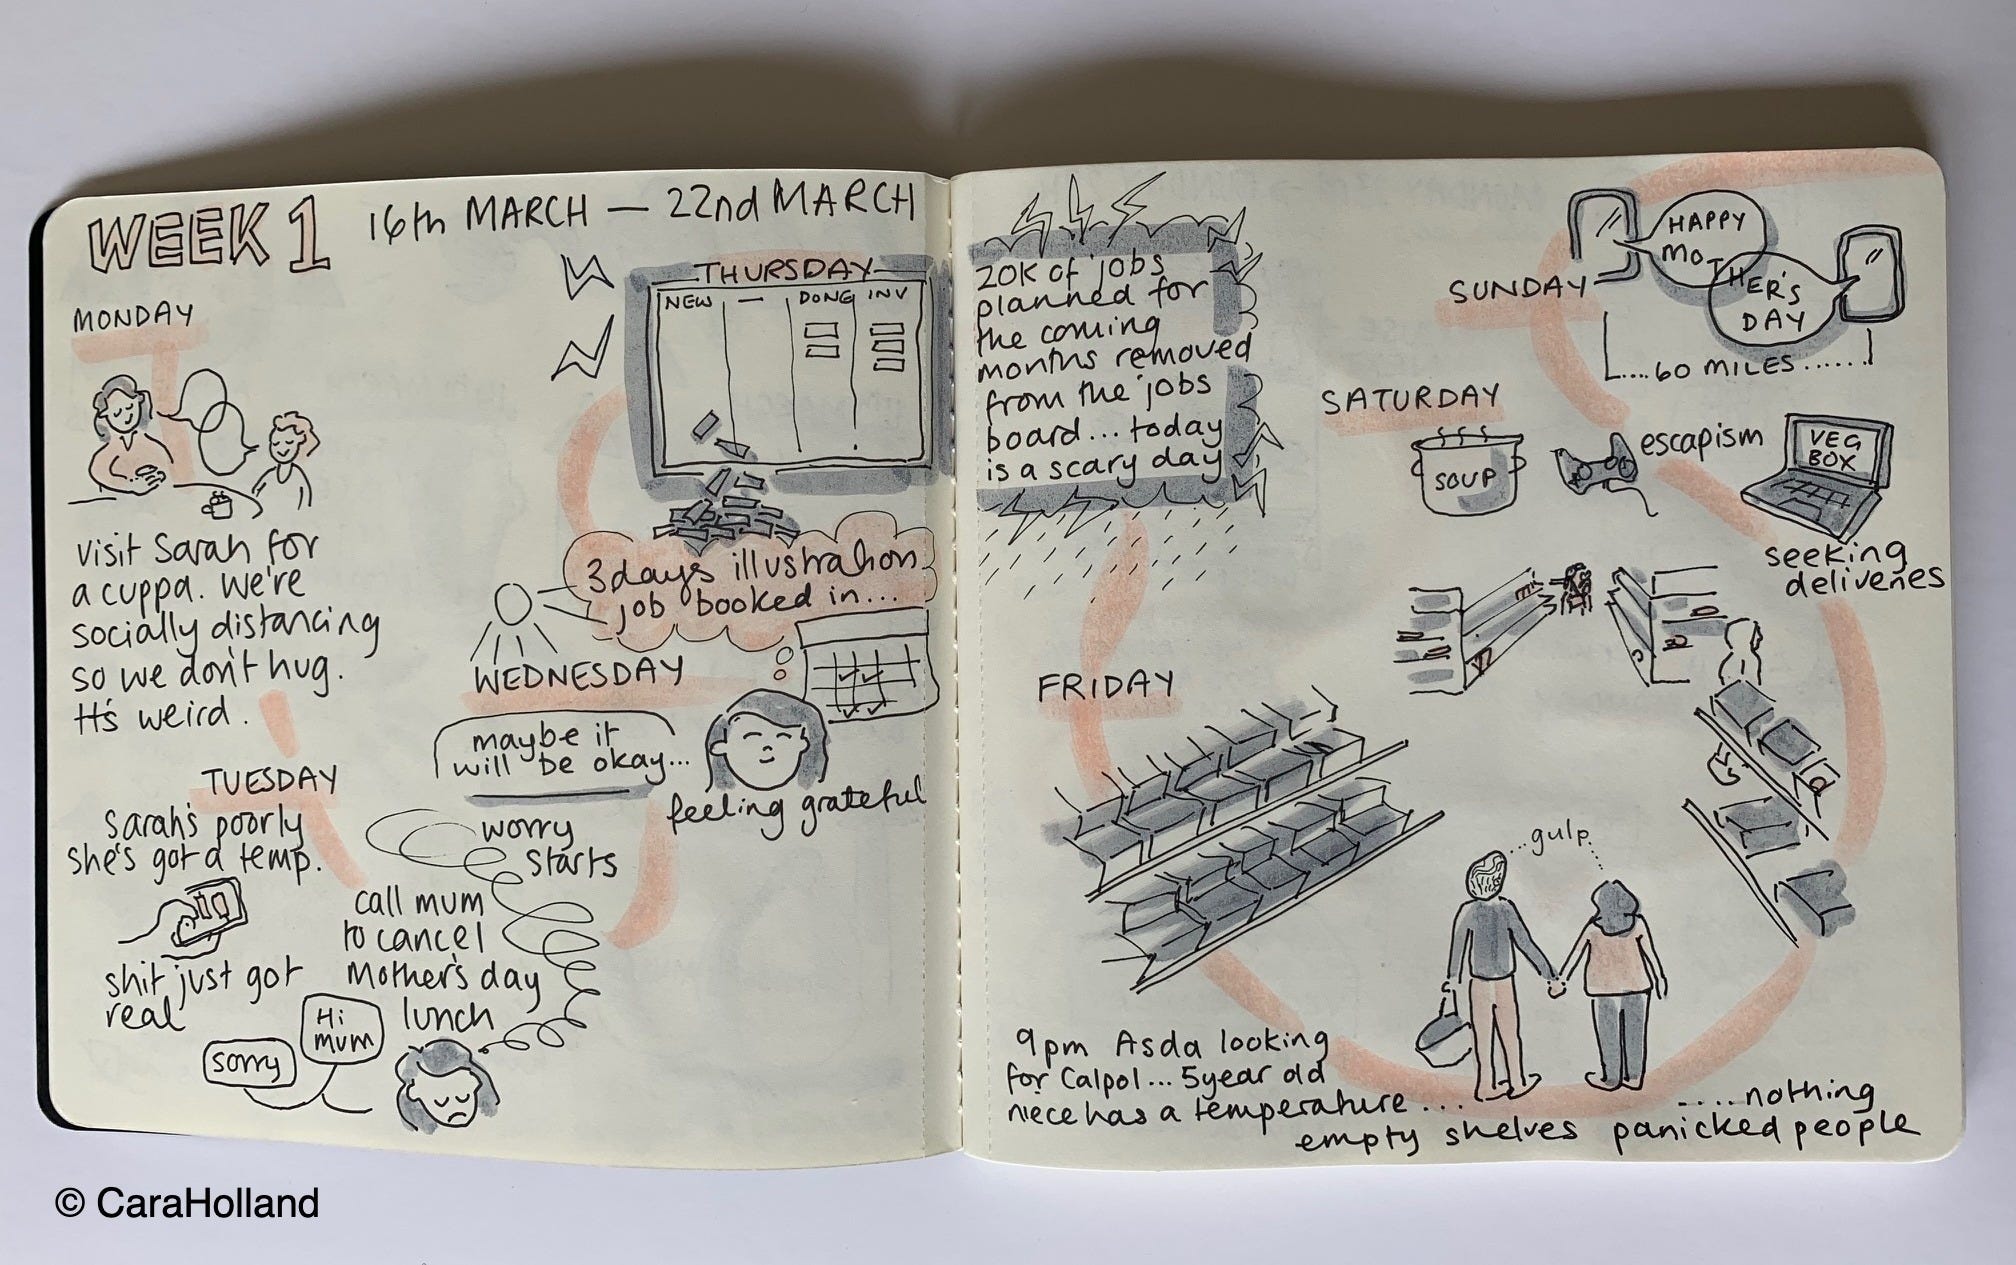 WEEK 1 16th MARCH — 22nd MARCH
MONDAY
visit Sarah for
a cuppa. We're
socially distancing
so we don't hug.
It's weird.
TUESDAY
Sarah's poorly
she's got a temp.
shit just got
real
call mum
to cancel
Mother's day
lunch
Hi
mum
sorry
worry
starts
WEDNESDAY
maybe it
will be okay...
3 days illustration
job booked in...
feeling grateful
THURSDAY
NEW — DONE INV
20K of jobs
planned for
the coming
months removed
from the jobs
board... today
is a scary day
FRIDAY
9pm Asda looking
for Calpol... 5 year old
niece has a temperature...
empty shelves
....nothing
panicked people
...gulp...
SATURDAY
SOUP
escapism
VEG
BOX
seeking
deliveries
SUNDAY
HAPPY
MOTHER'S
DAY
....60 MILES......
© CaraHolland